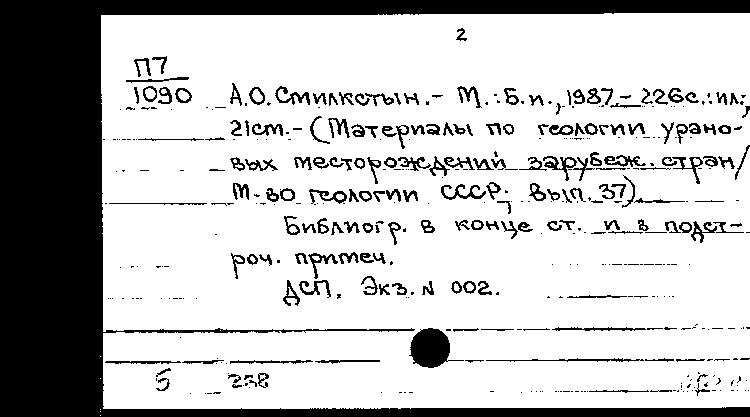 2
П7
1090 А.О. Смилкстын. - М.: Б.и., 1987. - 226с.: ил.;
21см. - (Материалы по геологии урано-
вых месторождений зарубеж. стран/
М-во геологии СССР; Вып. 37).
Библиогр. в конце ст. и в подст-
роч. примеч.
ДСП. Экз. N 002.
Б 238